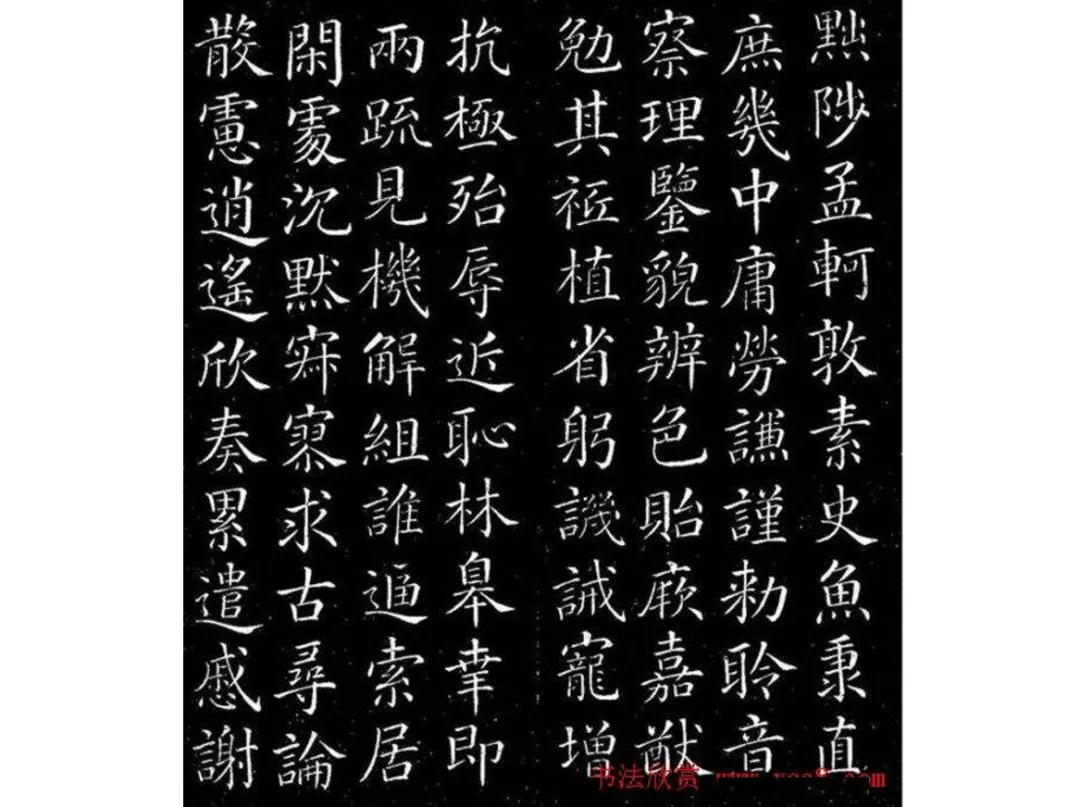 黜陟孟軻敦素史魚秉直
庶幾中庸勞謙謹勑聆音
察理鑒貌辨色貽厥嘉猷
勉其祗植省躬譏誡寵增
抗極殆辱近恥林皋幸即
兩疏見機解組誰逼索居
閑處沉默寂寥求古尋論
散慮逍遙欣奏累遣慼謝
书法欣赏